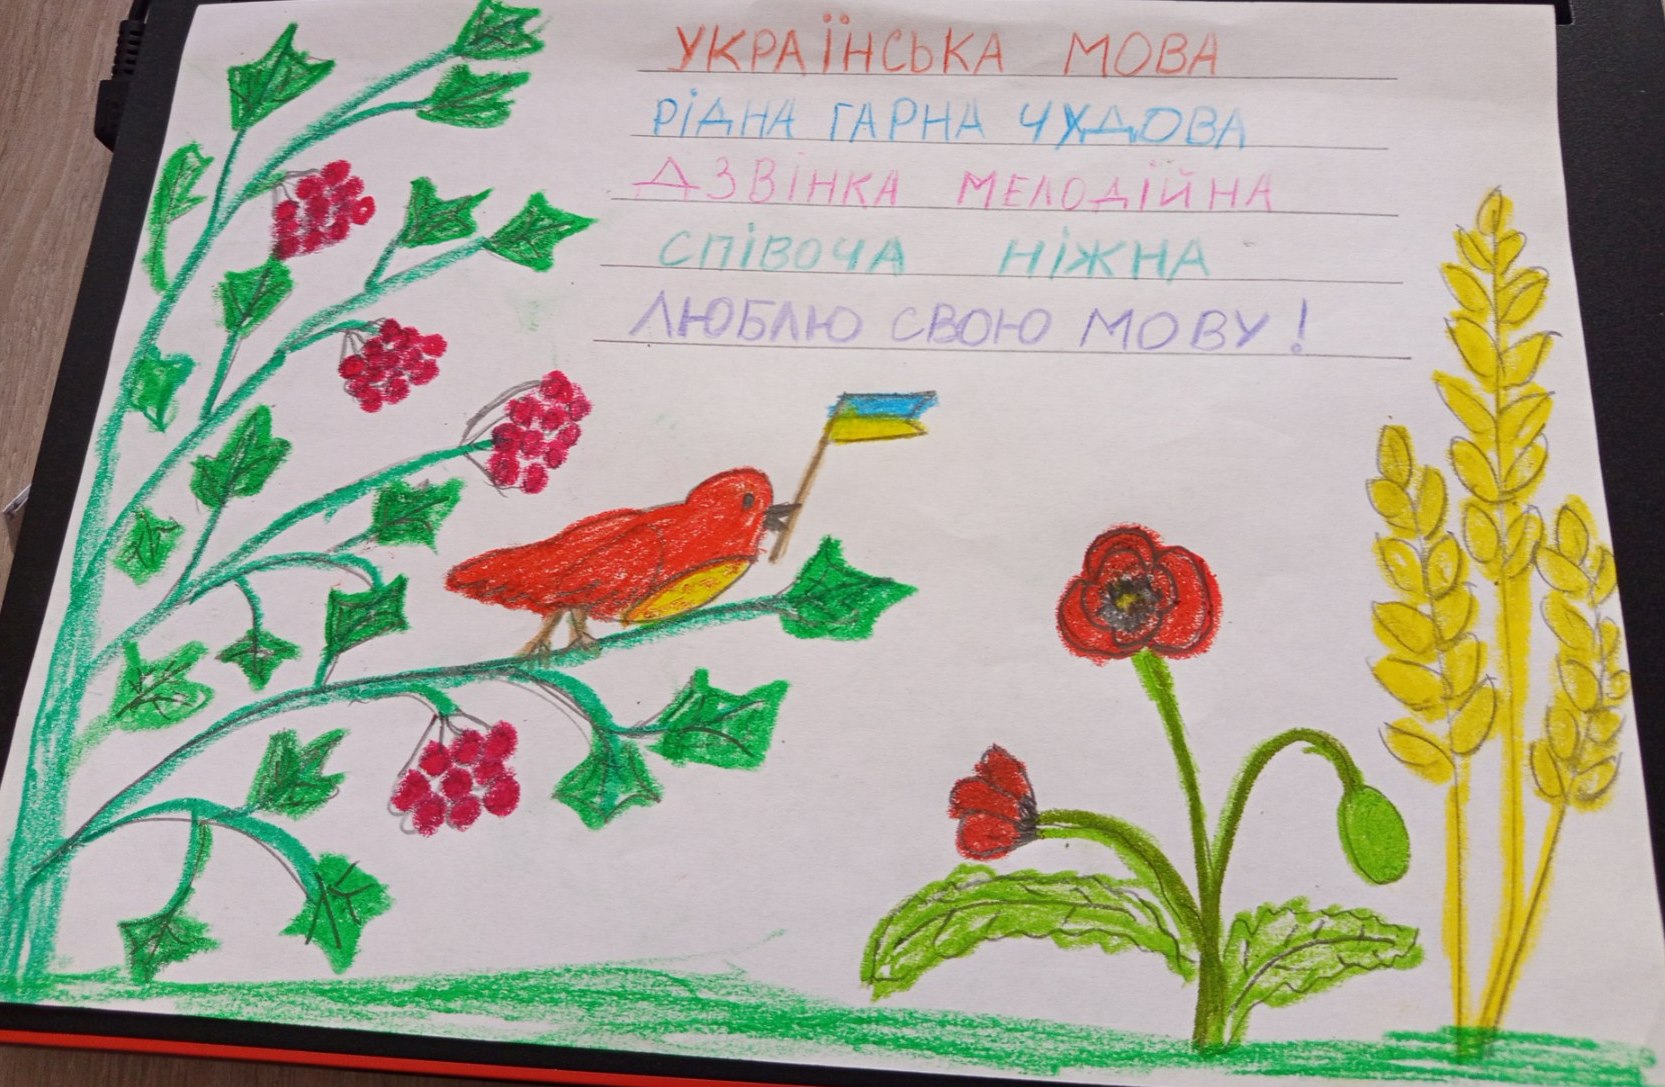 УКРАЇНСЬКА МОВА
РІДНА ГАРНА ЧУДОВА
ДЗВІНКА МЕЛОДІЙНА
СПІВОЧА НІЖНА
ЛЮБЛЮ СВОЮ МОВУ!